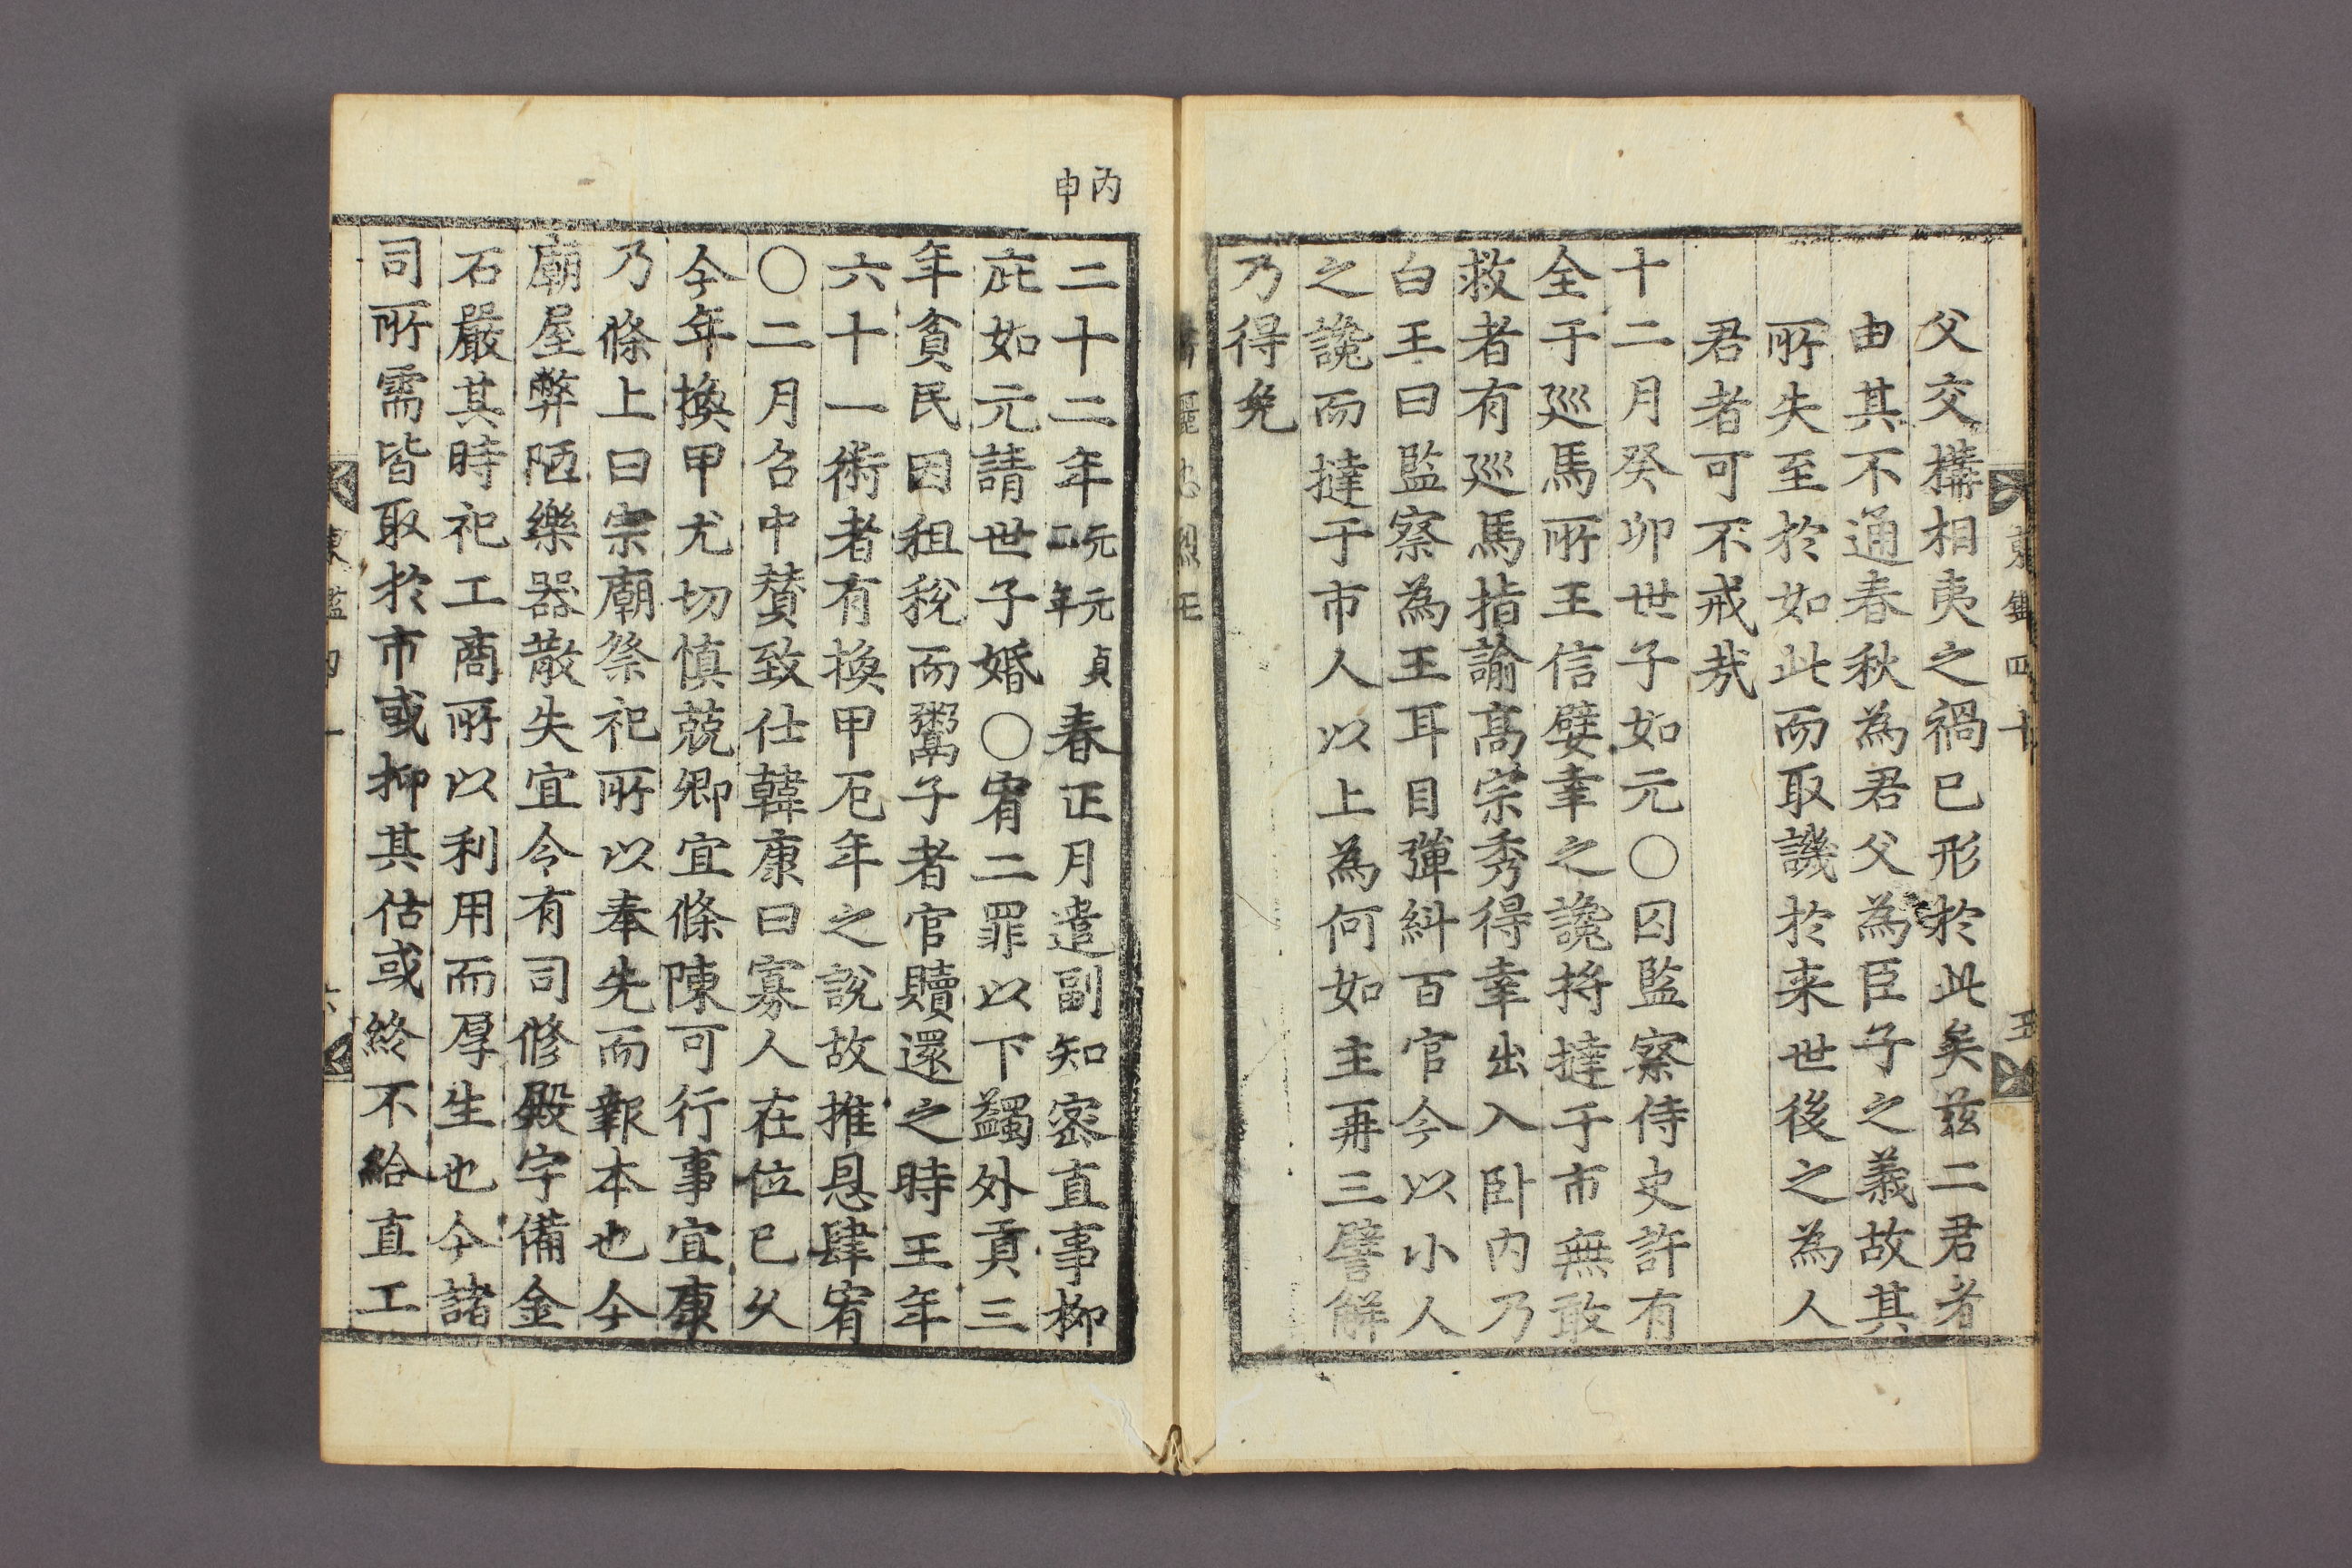 父交構相夷之禍已形於此矣兹二君者
由其不通春秋為君父為臣子之義故其
所失至於如此而取譏於来世後之為人
君者可不戒㦲
十二月癸卯世子如元○囚監察侍史許有
全于巡馬所王信嬖幸之讒將撻于市無敢
救者有巡馬指諭高宗秀得幸出入卧内乃
白王曰監察為王耳目彈糾百官今以小人
之讒而撻于市人以上為何如主再三譬解
乃得免
丙申
二十二年元元貞二年春正月遣副知密直事柳
庇如元請世子婚○宥二罪以下蠲外貢三
年貧民因租稅而鬻子者官贖還之時王年
六十一術者有換甲厄年之說故推恩肆宥
○二月召中贊致仕韓康曰寡人在位已久
今年換甲尤切愼兢卿宜條陳可行事宜康
乃條上曰宗廟祭祀所以奉先而報本也今
廟屋弊陋樂器散失宜令有司修殿宇備金
石嚴其時祀工商所以利用而厚生也今諸
司所需皆取於市或抑其估或終不給直工